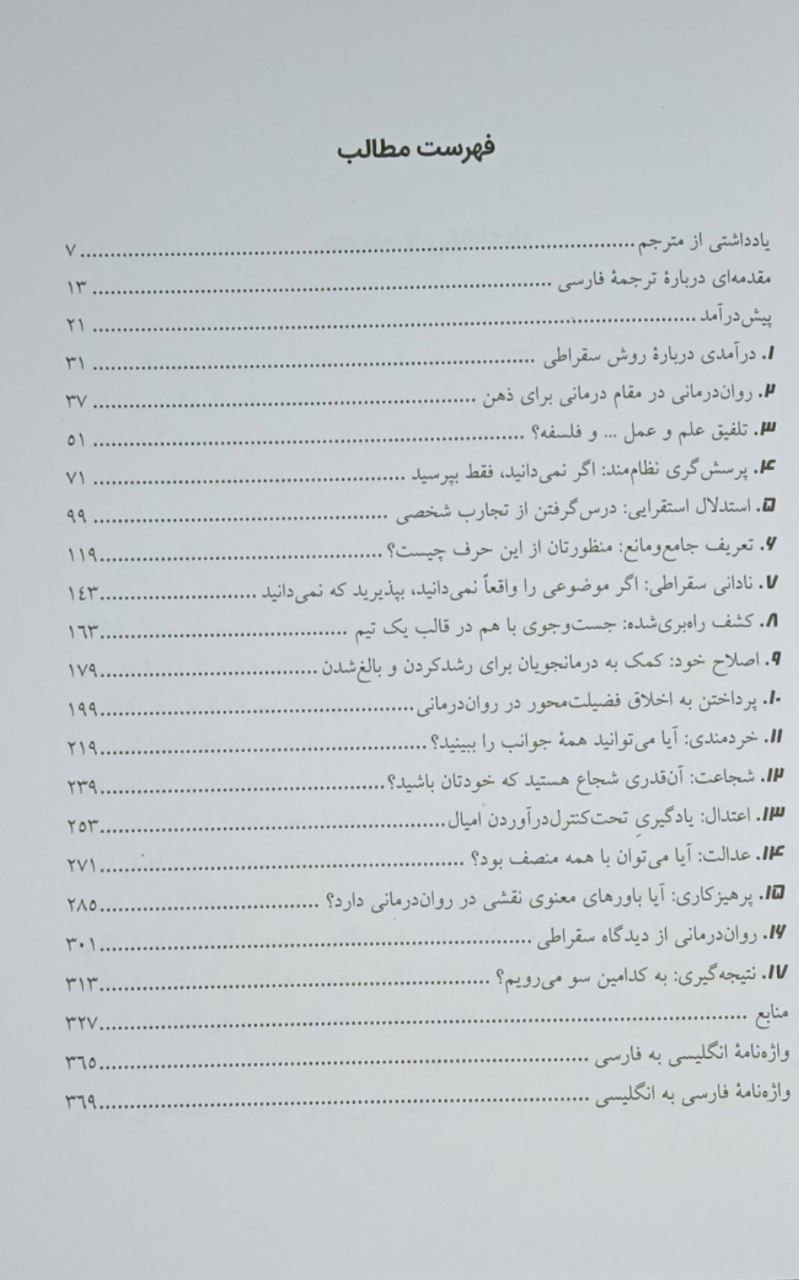 فهرست مطالب
یادداشتی از مترجم ........ ۷
مقدمه‌ای دربارهٔ ترجمهٔ فارسی ........ ۱۳
پیش‌درآمد ........ ۲۱
۱. درآمدی دربارهٔ روش سقراطی ........ ۳۱
۲. روان‌درمانی در مقام درمانی برای ذهن ........ ۳۷
۳. تلفیق علم و عمل ... و فلسفه؟ ........ ۵۱
۴. پرسش‌گری نظام‌مند: اگر نمی‌دانید، فقط بپرسید ........ ۷۱
۵. استدلال استقرایی: درس‌گرفتن از تجارب شخصی ........ ۹۹
۶. تعریف جامع‌ومانع: منظورتان از این حرف چیست؟ ........ ۱۱۹
۷. نادانی سقراطی: اگر موضوعی را واقعاً نمی‌دانید، بپذیرید که نمی‌دانید ........ ۱٤۳
۸. کشف راه‌بری‌شده: جست‌وجوی با هم در قالب یک تیم ........ ۱٦۳
۹. اصلاح خود: کمک به درمانجویان برای رشدکردن و بالغ‌شدن ........ ۱۷۹
۱۰. پرداختن به اخلاق فضیلت‌محور در روان‌درمانی ........ ۱۹۹
۱۱. خردمندی: آیا می‌توانید همهٔ جوانب را ببینید؟ ........ ۲۱۹
۱۲. شجاعت: آن‌قدری شجاع هستید که خودتان باشید؟ ........ ۲۳۹
۱۳. اعتدال: یادگیریِ تحت‌کنترل‌درآوردن امیال ........ ۲۵۳
۱۴. عدالت: آیا می‌توان با همه منصف بود؟ ........ ۲۷۱
۱۵. پرهیزکاری: آیا باورهای معنوی نقشی در روان‌درمانی دارد؟ ........ ۲۸۵
۱۶. روان‌درمانی از دیدگاه سقراطی ........ ۳۰۱
۱۷. نتیجه‌گیری: به کدامین سو می‌رویم؟ ........ ۳۱۳
منابع ........ ۳۲۷
واژه‌نامهٔ انگلیسی به فارسی ........ ۳٦۵
واژه‌نامهٔ فارسی به انگلیسی ........ ۳٦۹